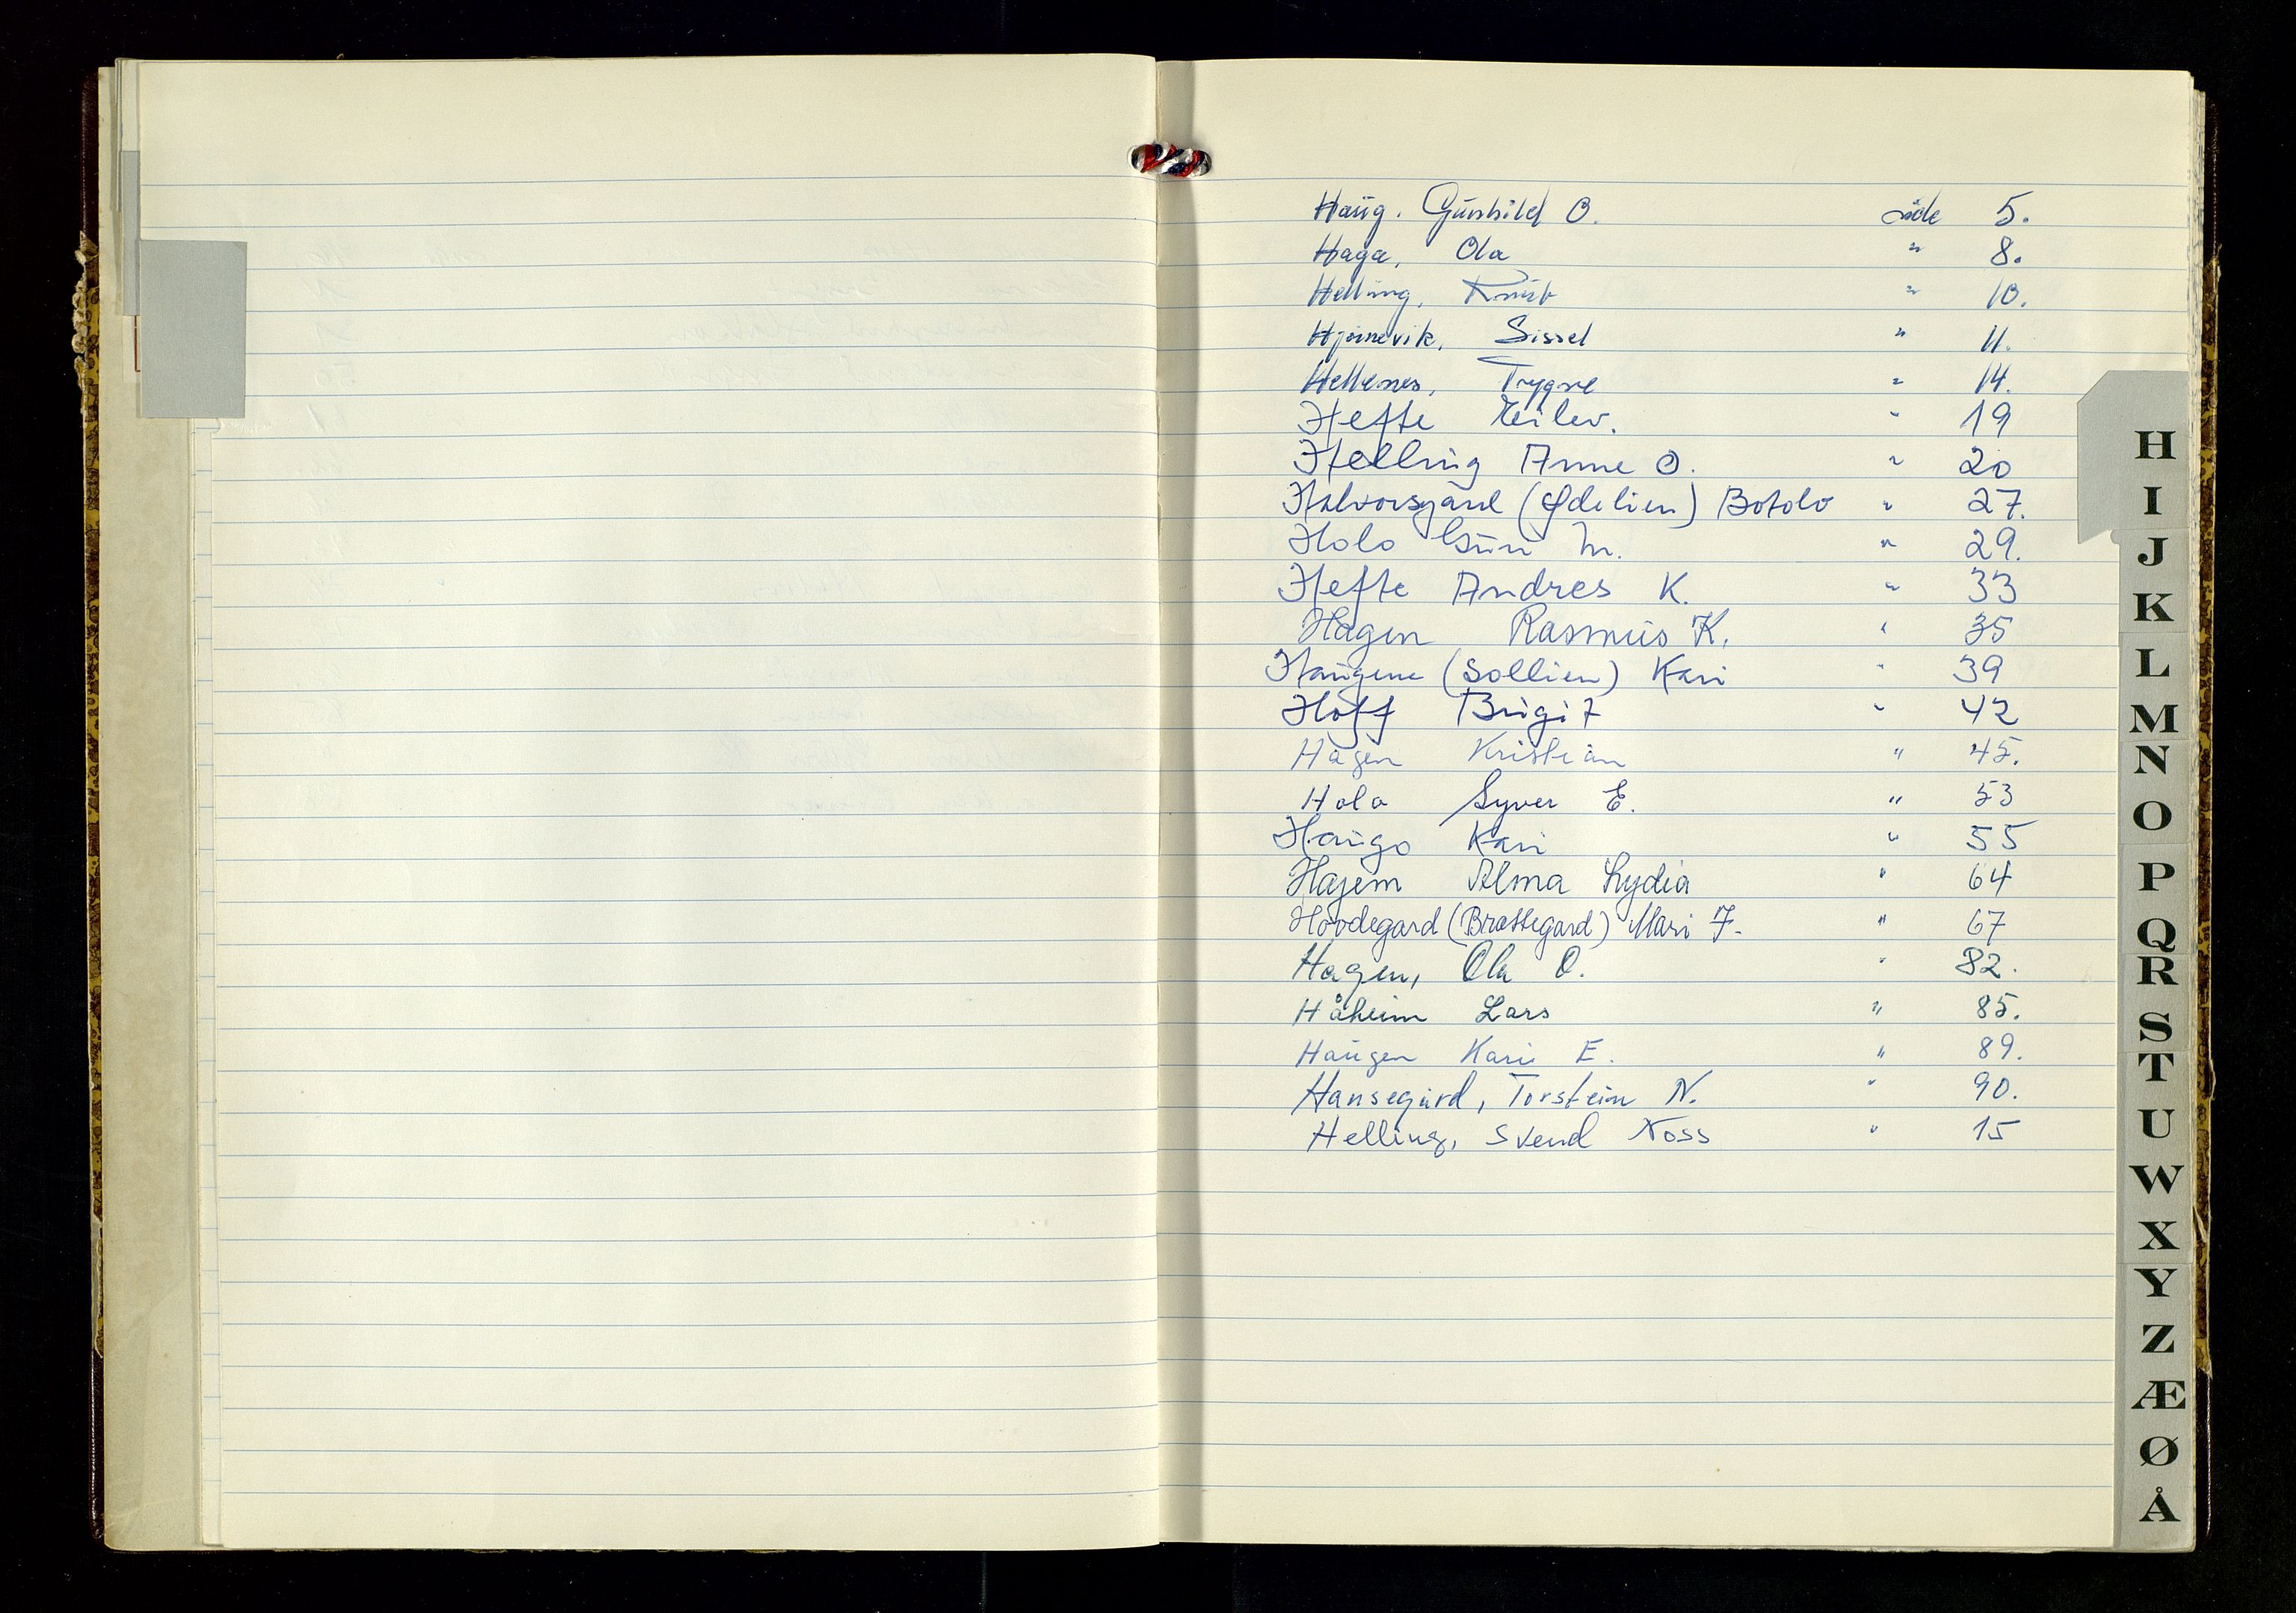 Haug. Gunhild O. side 5.
Haga, Ola " 8.
Helling, Knut " 10.
Hjørnevik, Sissel " 11.
Hellenes, Trygve " 14.
Hefte Eilev. " 19
Helling Anne O. " 20
Halvorsgård (Ødelien) Botolv " 27.
Holo Guri M. " 29.
Hefte Andres K. " 33
Hagen Rasmus K. " 35
Haugene (Sollien) Kari " 39
Hoff Brigit " 42
Hagen Kristian " 45.
Holo Syver E. " 53
Haugo Kari " 55
Hajem Alma Lydia " 64
Hovdegard (Brattegard) Mari F. " 67
Hagen, Ola O. " 82.
Håheim Lars " 85.
Haugen Kari E. " 89.
Hansegård, Torstein N. " 90.
Helling, Svend Noss " 15
H
I
J
K
L
M
N
O
P
Q
R
S
T
U
W
X
Y
Z
Æ
Ø
Å